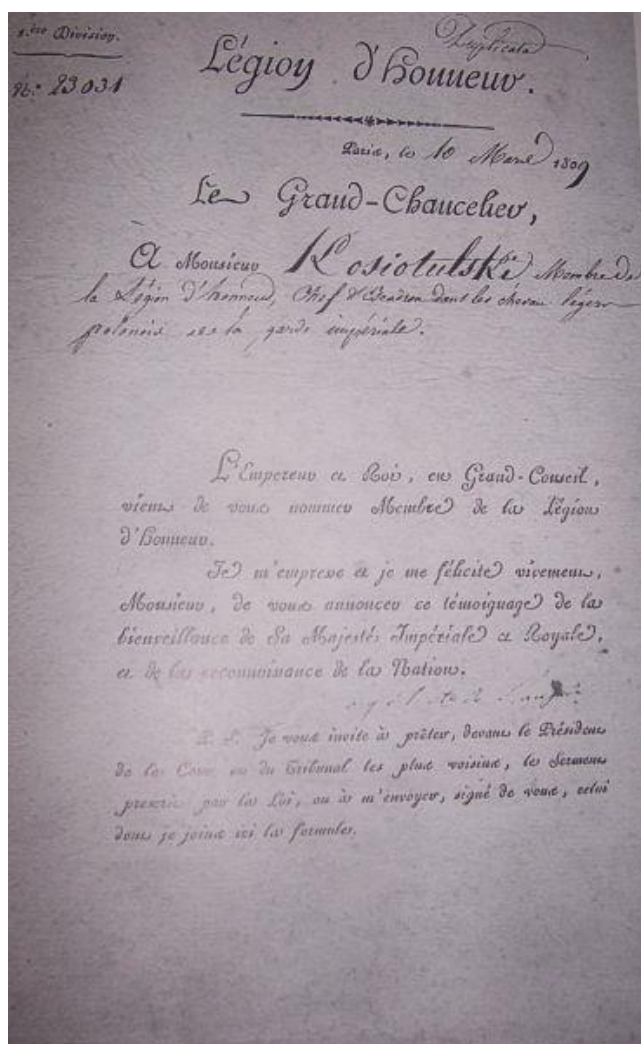 1.ère Division.
Duplicata
N.º 23031
Légion d'honneur.
Paris, le 10 Mars 1809
Le Grand-Chancelier,
A Monsieur Kosiotulski, Membre de
la Légion d'honneur, Chef d'Escadron dans les chevau légers
polonais de la garde impériale.
L'Empereur et Roi, en Grand-Conseil,
vient de vous nommer Membre de la Légion
d'Honneur.
Je m'empresse et je me félicite vivement,
Monsieur, de vous annoncer ce témoignage de la
bienveillance de Sa Majesté Impériale et Royale,
et de la reconnoissance de la Nation.
P. S. Je vous invite à prêter, devant le Président
de la Cour ou du Tribunal les plus voisins, le Serment
prescrit par la Loi, ou à m'envoyer, signé de vous, celui
dont je joins ici la formule.